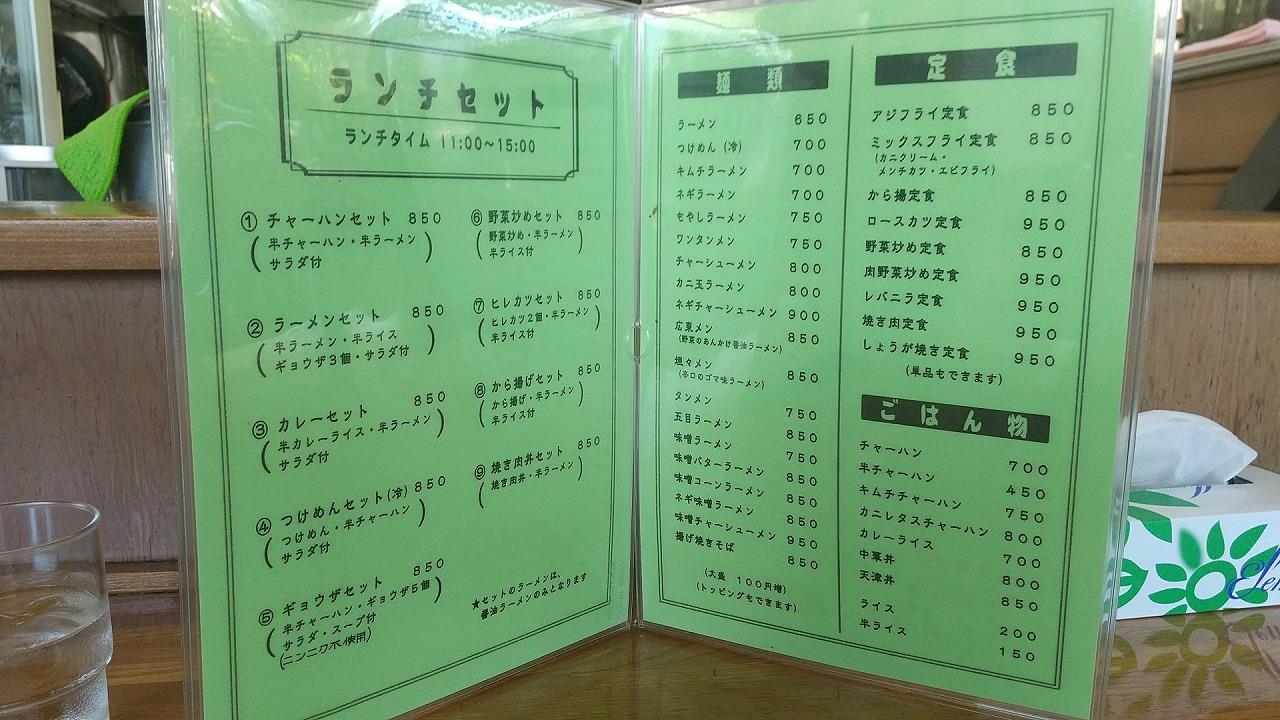 ランチセット
ランチタイム 11:00〜15:00
① チャーハンセット 850
(半チャーハン・半ラーメン
サラダ付)
② ラーメンセット 850
(半ラーメン・半ライス
ギョウザ3個・サラダ付)
③ カレーセット 850
(半カレーライス・半ラーメン
サラダ付)
④ つけめんセット(冷) 850
(つけめん・半チャーハン
サラダ付)
⑤ ギョウザセット 850
(半チャーハン・ギョウザ5個
サラダ・スープ付)
(ニンニク不使用)
⑥ 野菜炒めセット 850
(野菜炒め・半ラーメン
半ライス付)
⑦ ヒレカツセット 850
(ヒレカツ2個・半ラーメン
半ライス付)
⑧ から揚げセット 850
(から揚げ・半ラーメン
半ライス付)
⑨ 焼き肉丼セット 850
(焼き肉丼・半ラーメン)
★セットのラーメンは、
醤油ラーメンのみとなります
麺類
ラーメン 650
つけめん (冷) 700
キムチラーメン 700
ネギラーメン 700
もやしラーメン 750
ワンタンメン 750
チャーシューメン 800
カニ玉ラーメン 800
ネギチャーシューメン 900
広東メン 850
(野菜のあんかけ醤油ラーメン)
坦々メン 850
(辛口のゴマ味ラーメン)
タンメン 750
五目ラーメン 850
味噌ラーメン 750
味噌バターラーメン 850
味噌コーンラーメン 850
ネギ味噌ラーメン 850
味噌チャーシューメン 950
揚げ焼きそば 850
(大盛 100円増)
(トッピングもできます)
定食
アジフライ定食 850
ミックスフライ定食 850
(カニクリーム・
メンチカツ・エビフライ)
から揚定食 850
ロースカツ定食 950
野菜炒め定食 850
肉野菜炒め定食 950
レバニラ定食 950
焼き肉定食 950
しょうが焼き定食 950
(単品もできます)
ごはん物
チャーハン 700
半チャーハン 450
キムチチャーハン 750
カニレタスチャーハン 800
カレーライス 700
中華丼 800
天津丼 850
ライス 200
半ライス 150